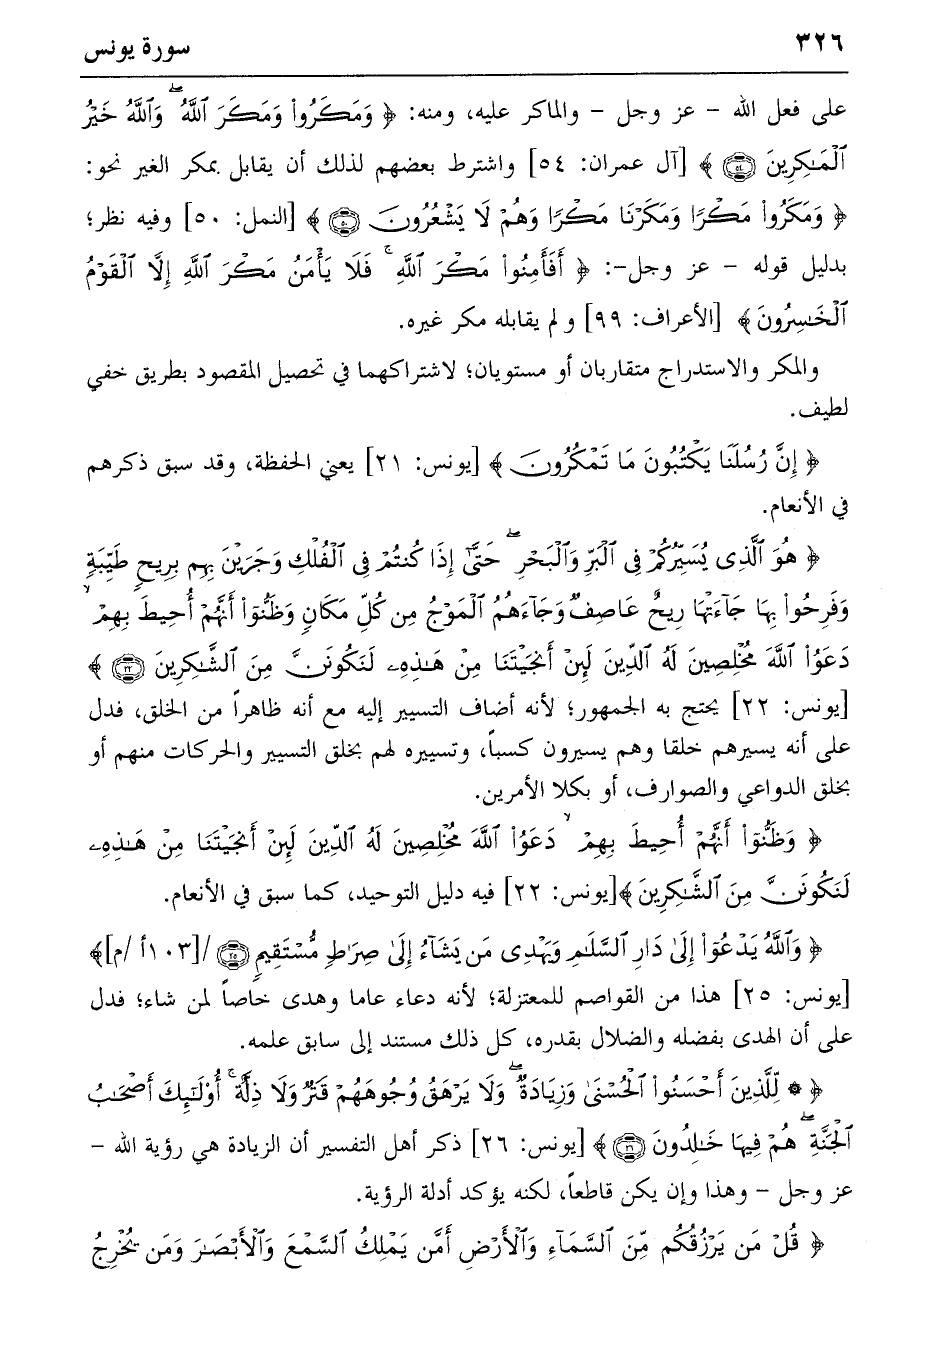 ٣٢٦ سورة يونس
على فعل الله – عز وجل – والماكر عليه، ومنه: ﴿ وَمَكَرُواْ وَمَكَرَ ٱللَّهُۖ وَٱللَّهُ خَيْرُ
ٱلْمَٰكِرِينَ ۝٥٤ ﴾ [آل عمران: ٥٤] واشترط بعضهم لذلك أن يقابل بمكر الغير نحو:
﴿ وَمَكَرُواْ مَكْرًا وَمَكَرْنَا مَكْرًا وَهُمْ لَا يَشْعُرُونَ ۝٥٠ ﴾ [النمل: ٥٠] وفيه نظر؛
بدليل قوله – عز وجل–: ﴿ أَفَأَمِنُواْ مَكْرَ ٱللَّهِۚ فَلَا يَأْمَنُ مَكْرَ ٱللَّهِ إِلَّا ٱلْقَوْمُ
ٱلْخَٰسِرُونَ ﴾ [الأعراف: ٩٩] و لم يقابله مكر غيره.
والمكر والاستدراج متقاربان أو مستويان؛ لاشتراكهما في تحصيل المقصود بطريق خفي
لطيف.
﴿ إِنَّ رُسُلَنَا يَكْتُبُونَ مَا تَمْكُرُونَ ﴾ [يونس: ٢١] يعني الحفظة، وقد سبق ذكرهم
في الأنعام.
﴿ هُوَ ٱلَّذِى يُسَيِّرُكُمْ فِى ٱلْبَرِّ وَٱلْبَحْرِۖ حَتَّىٰٓ إِذَا كُنتُمْ فِى ٱلْفُلْكِ وَجَرَيْنَ بِهِم بِرِيحٍ طَيِّبَةٍ
وَفَرِحُواْ بِهَا جَآءَتْهَا رِيحٌ عَاصِفٌ وَجَآءَهُمُ ٱلْمَوْجُ مِن كُلِّ مَكَانٍ وَظَنُّوٓاْ أَنَّهُمْ أُحِيطَ بِهِمْۙ
دَعَوُاْ ٱللَّهَ مُخْلِصِينَ لَهُ ٱلدِّينَ لَئِنْ أَنجَيْتَنَا مِنْ هَٰذِهِۦ لَنَكُونَنَّ مِنَ ٱلشَّٰكِرِينَ ۝٢٢ ﴾
[يونس: ٢٢] يحتج به الجمهور؛ لأنه أضاف التسيير إليه مع أنه ظاهراً من الخلق، فدل
على أنه يسيرهم خلقا وهم يسيرون كسباً، وتسييره لهم بخلق التسيير والحركات منهم أو
بخلق الدواعي والصوارف، أو بكلا الأمرين.
﴿ وَظَنُّوٓاْ أَنَّهُمْ أُحِيطَ بِهِمْۙ دَعَوُاْ ٱللَّهَ مُخْلِصِينَ لَهُ ٱلدِّينَ لَئِنْ أَنجَيْتَنَا مِنْ هَٰذِهِۦ
لَنَكُونَنَّ مِنَ ٱلشَّٰكِرِينَ ﴾[يونس: ٢٢] فيه دليل التوحيد، كما سبق في الأنعام.
﴿ وَٱللَّهُ يَدْعُوٓاْ إِلَىٰ دَارِ ٱلسَّلَٰمِ وَيَهْدِى مَن يَشَآءُ إِلَىٰ صِرَٰطٍ مُّسْتَقِيمٍ ۝٢٥ /[١٠٣أ /م]﴾
[يونس: ٢٥] هذا من القواصم للمعتزلة؛ لأنه دعاء عاما وهدى خاصاً لمن شاء؛ فدل
على أن الهدى بفضله والضلال بقدره، كل ذلك مستند إلى سابق علمه.
﴿ ۞ لِّلَّذِينَ أَحْسَنُواْ ٱلْحُسْنَىٰ وَزِيَادَةٌۖ وَلَا يَرْهَقُ وُجُوهَهُمْ قَتَرٌ وَلَا ذِلَّةٌۚ أُوْلَٰٓئِكَ أَصْحَٰبُ
ٱلْجَنَّةِۖ هُمْ فِيهَا خَٰلِدُونَ ۝٢٦ ﴾ [يونس: ٢٦] ذكر أهل التفسير أن الزيادة هي رؤية الله –
عز وجل – وهذا وإن يكن قاطعاً، لكنه يؤكد أدلة الرؤية.
﴿ قُلْ مَن يَرْزُقُكُم مِّنَ ٱلسَّمَآءِ وَٱلْأَرْضِ أَمَّن يَمْلِكُ ٱلسَّمْعَ وَٱلْأَبْصَٰرَ وَمَن يُخْرِجُ